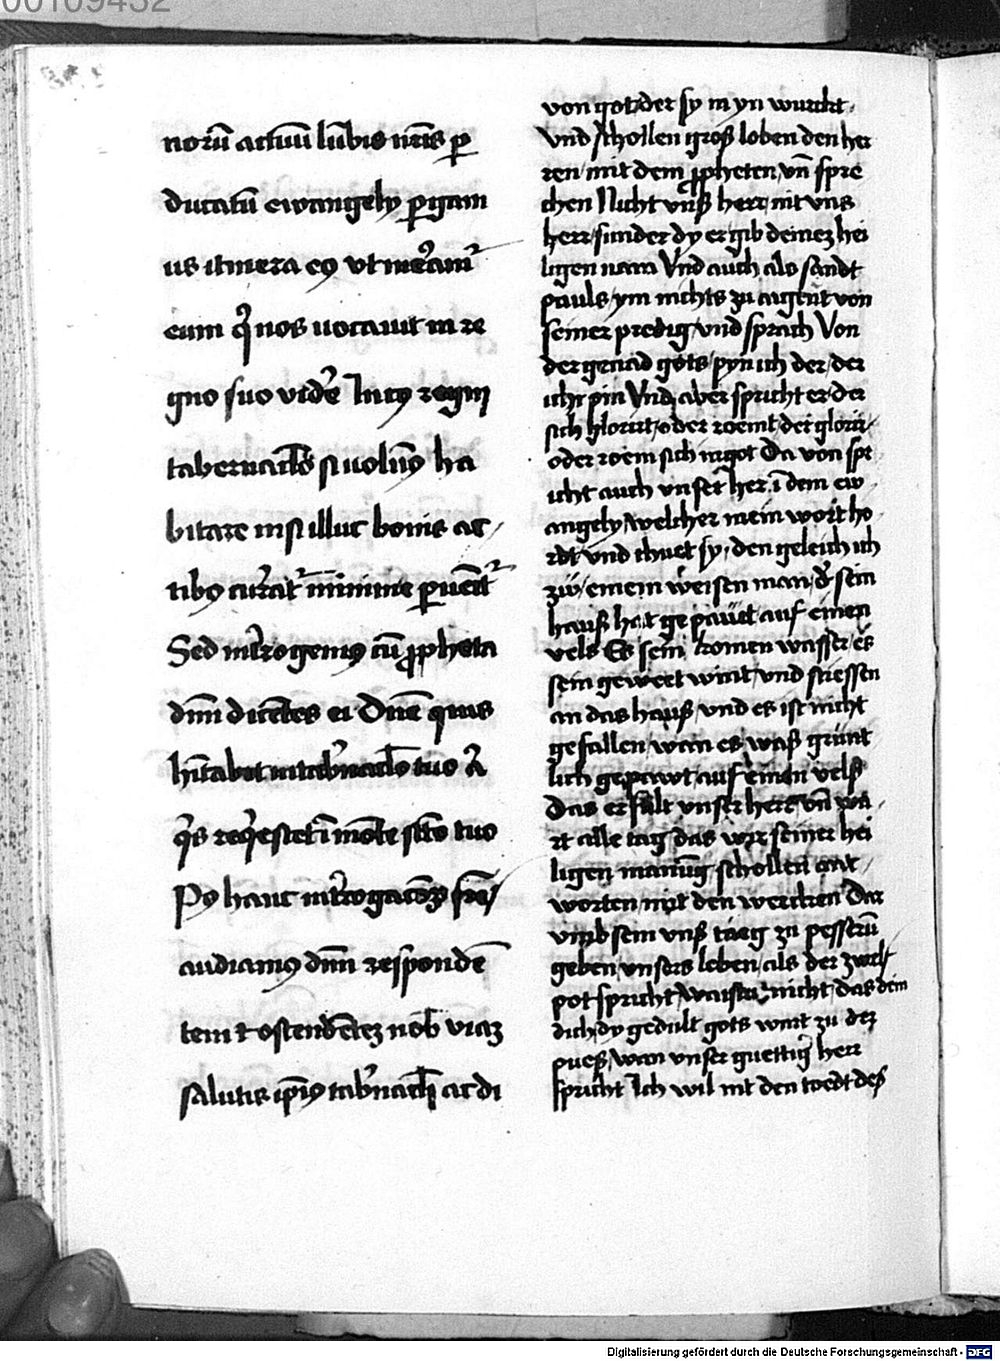 00109432
norū actuū lūbis nr̄is ꝑ
ducatū ewangely ꝑgam
us itinera eꝰ vt mer̄am̄
eum qͥ nos uocauit in re
gno suo vider̄e In cꝰ regni
tabernac̄lo si uolūꝰ ha
bitare nisi illuc bonis ac
tibꝰ curr̄at᷑ minime ꝑuēit᷑
Sed int̄rogemꝰ cū ꝓpheta
dn̄m dicētes ei Dn̄e quis
hītabit in tab̄nac̄lo tuo
qͥs reqͥescet ī mōte sc̄o tuo
Pꝰ hanc int̄rogac̄oēꝫ fr̄es
audiamꝰ dn̄m respondē
tem et ostendēteꝫ nob̄ viaꝫ
salutis ip̄iꝰ tab̄nac̄li ac di
von got der sy in yn wurckt
Vnd schollen groß loben den her
ren mit dem ꝓpheten vn̄ spre
chen Nicht vnß herr nit vns
herr sunder dy er gib deineꝫ hei
ligen nam Vnd auch als sandt
pauls ym nichts zu aigent von
seiner predig vnd sprach Von
der genad gots pyn ich der der
ich pin Vnd aber spricht er der
sich gloriit oder roemt der glorir
oder roem sich in got Da von spr
icht auch vnser her ī dem ew
angely welcher mein wort ho
rdt vnd thuet sy den geleich ich
zw einem weisen man d̄ sein
hauß hat gepauet auf einen
vels Es sein komen wasser es
sein geweet wint vnd stiessen
an das hauß vnd es ist nicht
gefallen wan es waß grunt
lich gepawt auf einen velß
Das erfult vnser herr vn̄ wa
rt alle tag das wyr seiner hei
ligen manūg schollen ant
worten mit den wercken Dar
vmb sein vnß taeg zu pesserū
geben vnsers leben als der zwelf
pot spricht waistu nicht das dein
dich dy gedult gots wart zu der
pueß wan vnser guettig herr
spricht Ich wil nit den toedt deß
Digitalisierung gefördert durch die Deutsche Forschungsgemeinschaft - DFG